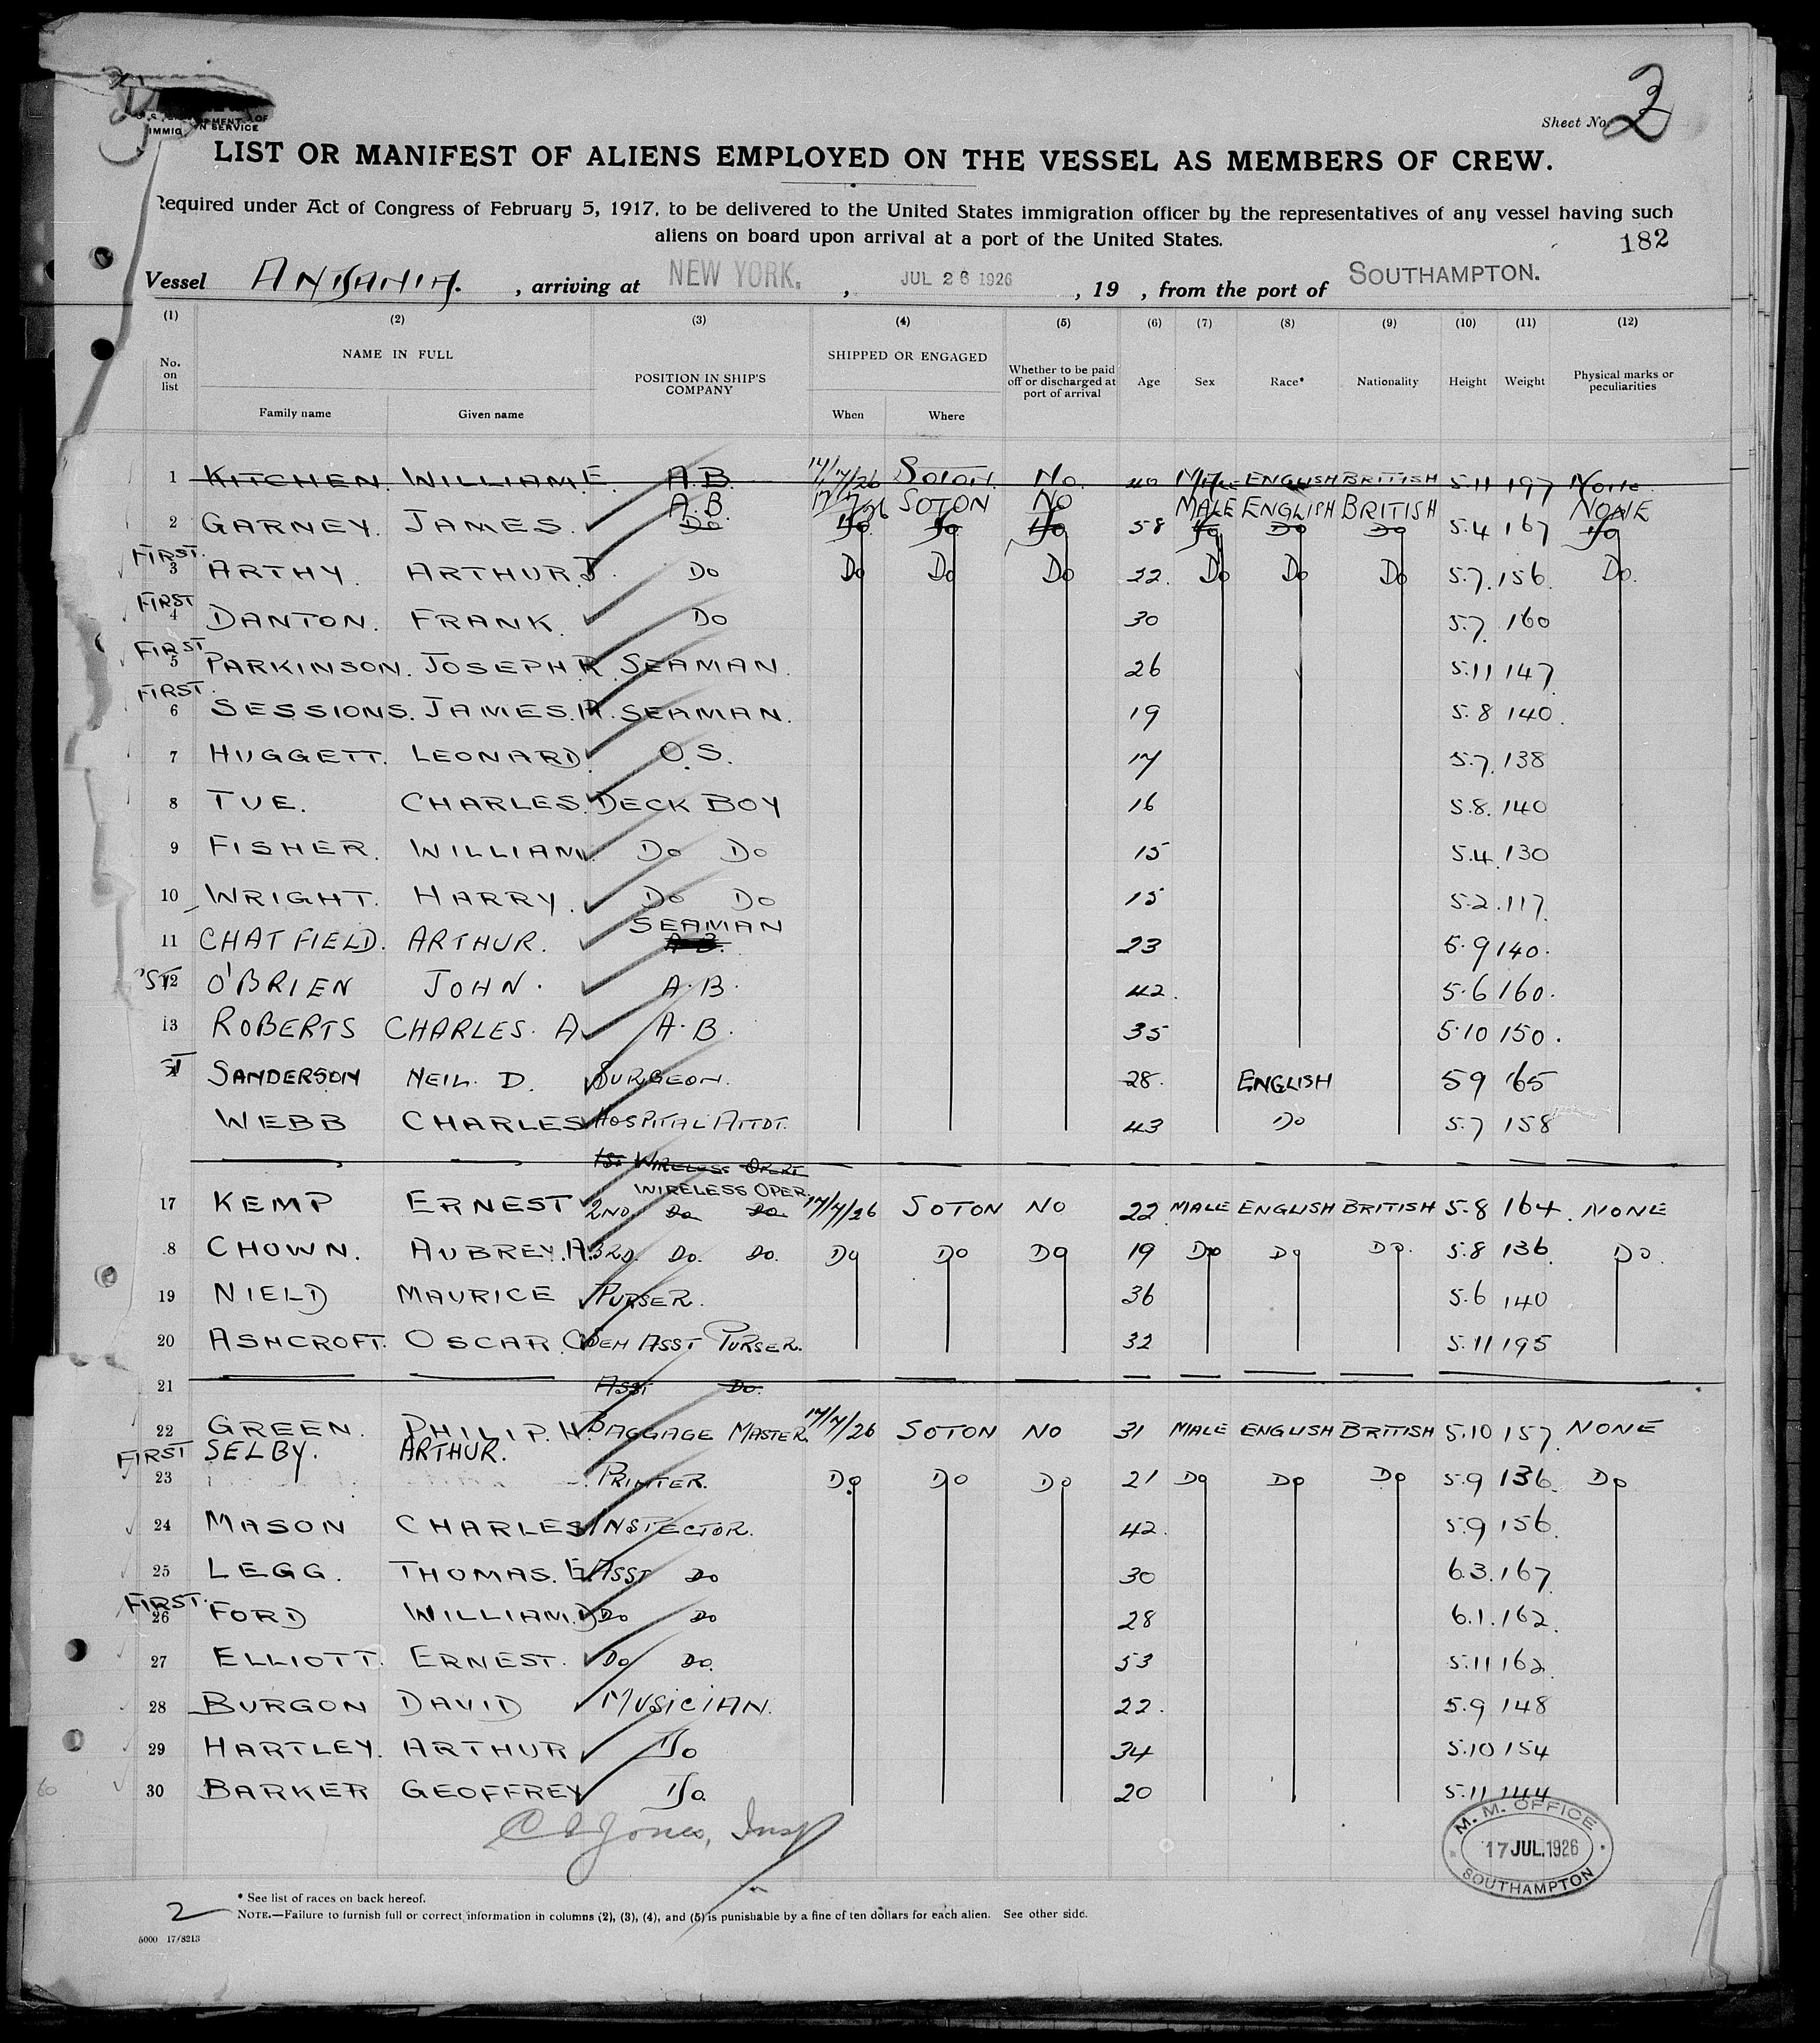 Sheet No. 2
IMMIG N SERVICE
LIST OR MANIFEST OF ALIENS EMPLOYED ON THE VESSEL AS MEMBERS OF CREW.
Required under Act of Congress of February 5, 1917, to be delivered to the United States immigration officer by the representatives of any vessel having such
aliens on board upon arrival at a port of the United States.
182
Vessel ANTSANIA. , arriving at NEW YORK. , JUL 26 1926 , 19 , from the port of SOUTHAMPTON.
(1) (2) (3) (4) (5) (6) (7) (8) (9) (10) (11) (12)
No. on list NAME IN FULL POSITION IN SHIP'S COMPANY SHIPPED OR ENGAGED Whether to be paid off or discharged at port of arrival Age Sex Race* Nationality Height Weight Physical marks or peculiarities
Family name Given name When Where
1 KITCHEN. WILLIAM E. A.B. 17/7/26 SOTON. No. 40 MALE ENGLISH BRITISH 5.11 197 None.
A.B. 17/7/26 SOTON NO MALE ENGLISH BRITISH NONE
2 GARNEY. JAMES. Do. Do. Do. Do 58 Do Do Do 5.4 167 Do
FIRST.
3 ARTHY. ARTHUR J. Do Do Do Do 22. Do Do Do 5.7. 156. Do.
FIRST
4 DANTON. FRANK. Do 30 5.7. 160
FIRST
5 PARKINSON. JOSEPH R. SEAMAN. 26 5.11 147
FIRST.
6 SESSIONS. JAMES. R. SEAMAN. 19 5.8 140.
7 HUGGETT. LEONARD. O.S. 17 5.7. 138
8 TUE. CHARLES. DECK BOY 16 5.8. 140
9 FISHER. WILLIAM. Do Do 15 5.4. 130
10 WRIGHT. HARRY. Do Do 15 5.2. 117.
SEAMAN
11 CHATFIELD. ARTHUR. A.B. 23 5.9 140.
'ST 12 O'BRIEN JOHN. A.B. 42. 5.6 160.
13 ROBERTS CHARLES. A A.B. 35 5.10 150.
ST SANDERSON NEIL. D. SURGEON. 28. ENGLISH 59 165
WEBB CHARLES HOSPITAL ATTDT. 43 Do 5.7 158
1ST WIRELESS OPERT
WIRELESS OPER.
17 KEMP ERNEST 2ND. Do Do. 17/7/26 SOTON NO 22. MALE ENGLISH BRITISH 5.8 164. NONE
8 CHOWN. AUBREY. A. 3RD. Do. Do. Do Do Do 19 Do Do Do. 5.8 136. Do.
19 NIELD MAURICE PURSER. 36 5.6 140
20 ASHCROFT. OSCAR. C SEN ASST PURSER. 32 5.11 195
21 ASST Do.
22 GREEN. PHILIP. H. BAGGAGE MASTER. 17/7/26 SOTON NO 31 MALE ENGLISH BRITISH 5.10 157. NONE
FIRST SELBY. ARTHUR.
23 PRINTER. Do. Do Do 21 Do Do Do 5.9 136. Do
24 MASON CHARLES INSPECTOR. 42. 5.9 156.
25 LEGG. THOMAS. E. ASST Do 30 6.3. 167.
FIRST.
26 FORD WILLIAM. D Do Do 28 6.1. 162.
27 ELLIOTT. ERNEST. Do Do. 53 5.11 162.
28 BURGON DAVID MUSICIAN. 22. 5.9 148
29 HARTLEY. ARTHUR Do 34 5.10 154
60 30 BARKER GEOFFREY Do. 20 5.11 144
C Jones, Insp
M. M. OFFICE
17 JUL. 1926
SOUTHAMPTON
* See list of races on back hereof.
2 NOTE.—Failure to furnish full or correct information in columns (2), (3), (4), and (5) is punishable by a fine of ten dollars for each alien. See other side.
5000 17/8213